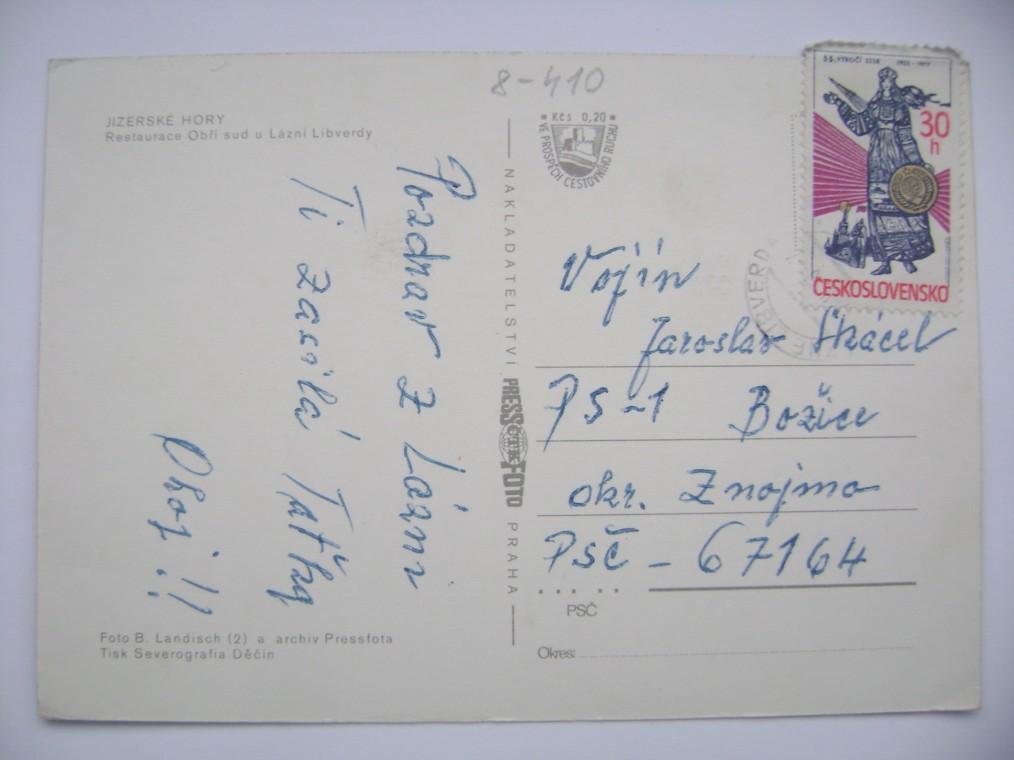 8-410
JIZERSKÉ HORY
Restaurace Obří sud u Lázní Libverdy
Pozdrav z Lázní
Ti zasílá Taťka
Ahoj!!
Foto B. Landisch (2) a archiv Pressfota
Tisk Severografia Děčín
NAKLADATELSTVÍ PRESSFOTO PRAHA
ČTK
Kčs 0,20
VE PROSPĚCH CESTOVNÍHO RUCHU
55. VÝROČÍ SSSR 1922-1977
30 h
ČESKOSLOVENSKO
LIBVERD
Vojín
Jaroslav Skácel
PS-1 Božice
okr. Znojmo
PSČ - 67164
PSČ
Okres: